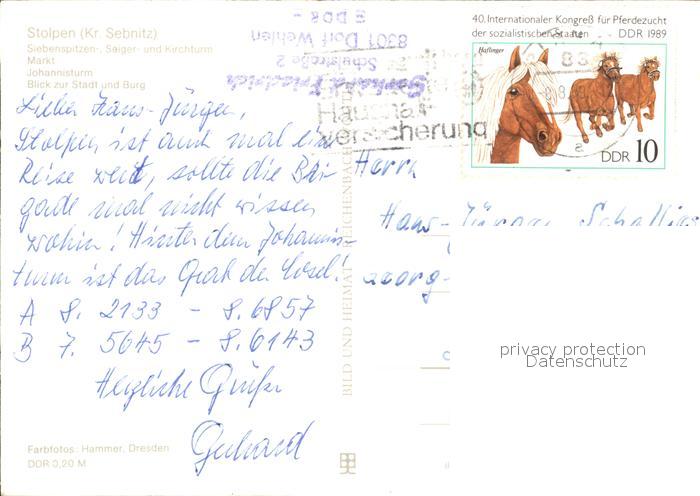 Stolpen (Kr. Sebnitz)
Siebenspitzen-, Saiger- und Kirchturm
Markt
Johannisturm
Blick zur Stadt und Burg
Lieber Hans-Jürgen,
Stolpen ist auch mal eine
Reise wert, sollte die Bri-
gade mal nicht wissen
wohin! Hinter dem Johannis-
turm ist das Grab der Cosel!
A 8. 2133 - 8. 6857
B 7. 5645 - 8. 6143
Herzliche Grüße
Gerhard
Farbfotos: Hammer, Dresden
DDR 0,20 M
BILD UND HEIMAT
Gerhard Friedrich
Schulstraße 2
8301 Dorf Wehlen
- DDR -
Haushalt
versicherung
40. Internationaler Kongreß für Pferdezucht
der sozialistischen Staaten DDR 1989
Haflinger
DDR 10
Herrn
Hans-Jürgen
Georg-
privacy protection
Datenschutz